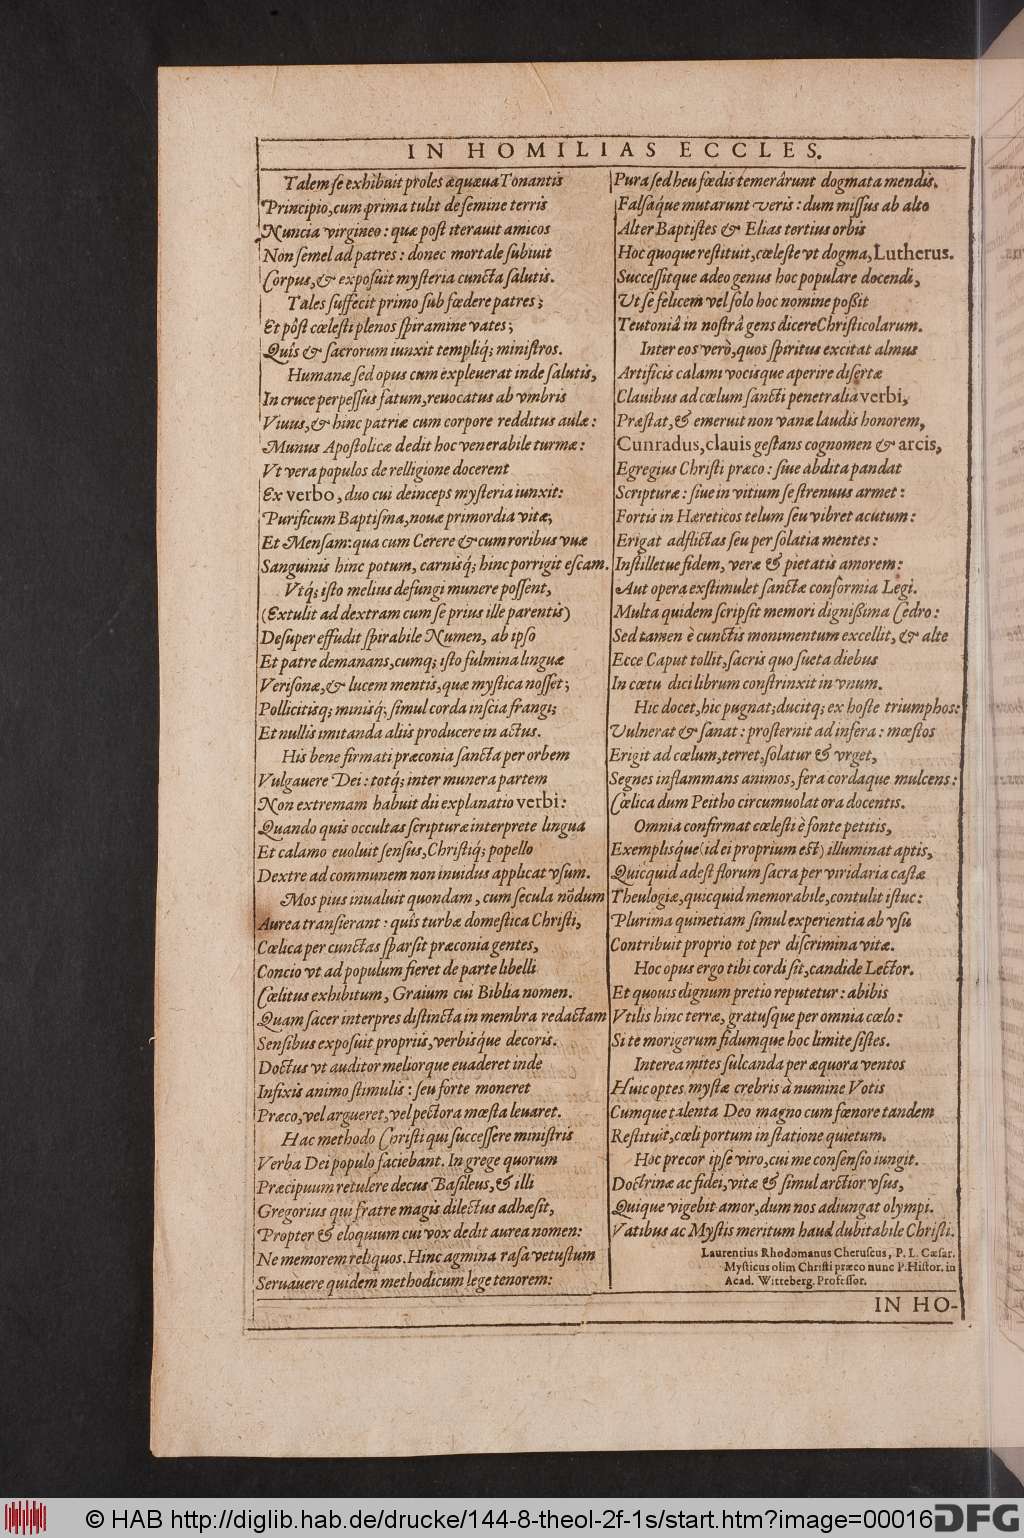 IN HOMILIAS ECCLES.
Talem se exhibuit proles æquæua Tonantis
Principio, cum prima tulit de semine terris
Nuncia virgineo: quæ post iterauit amicos
Non semel ad patres: donec mortale subiuit
Corpus, & exposuit mysteria cuncta salutis.
Tales suffecit primo sub fœdere patres;
Et pòst cœlesti plenos spiramine vates;
Quîs & sacrorum iunxit templiq́; ministros.
Humanæ sed opus cum expleuerat inde salutis,
In cruce perpessus fatum, reuocatus ab vmbris
Viuus, & hinc patriæ cum corpore redditus aulæ:
Munus Apostolicæ dedit hoc venerabile turmæ:
Vt vera populos de relligione docerent
Ex verbo, duo cui deinceps mysteria iunxit:
Purificum Baptisma, nouæ primordia vitæ,
Et Mensam: qua cum Cerere & cum roribus vuæ
Sanguinis hinc potum, carnisq́; hinc porrigit escam.
Vtq́; isto melius defungi munere possent,
(Extulit ad dextram cum se prius ille parentis)
Desuper effudit spirabile Numen, ab ipso
Et patre demanans, cumq; isto fulmina linguæ
Verisonæ, & lucem mentis, quæ mystica nosset;
Pollicitisq; minisq́; simul corda inscia frangi;
Et nullis imitanda aliis producere in actus.
His bene firmati præconia sancta per orbem
Vulgauere Dei: totq́; inter munera partem
Non extremam habuit dii explanatio verbi:
Quando quis occultas scripturæ interprete lingua
Et calamo euoluit sensus, Christiq́; popello
Dextre ad communem non inuidus applicat vsum.
Mos pius inualuit quondam, cum secula nõdum
Aurea transierant: quîs turbæ domestica Christi,
Cœlica per cunctas sparsit præconia gentes,
Concio vt ad populum fieret de parte libelli
Cœlitus exhibitum, Graium cui Biblia nomen.
Quam sacer interpres distincta in membra redactam
Sensibus exposuit propriis, verbisq́ue decoris.
Doctus vt auditor meliorque euaderet inde
Infixis animo stimulis: seu forte moneret
Præco, vel argueret, vel pectora mœsta leuaret.
Hac methodo Christi qui successere ministris
Verba Dei populo faciebant. In grege quorum
Præcipuum retulere decus Basileus, & illi
Gregorius qui fratre magis dilectus adhæsit,
Propter & eloquium cui vox dedit aurea nomen:
Ne memorem reliquos. Hinc agmina rasa vetustum
Seruauere quidem methodicum lege tenorem:
Pura sed heu fœdis temerârunt dogmata mendis.
Falsaq́ue mutarunt veris: dum missus ab alto
Alter Baptistes & Elias tertius orbis
Hoc quoque restituit, cœleste vt dogma, Lutherus.
Successitque adeo genus hoc populare docendi,
Vt se felicem vel solo hoc nomine poßit
Teutoniâ in nostrâ gens dicere Christicolarum.
Inter eos verò, quos spiritus excitat almus
Artificis calami vocisque aperire disertæ
Clauibus ad cœlum sancti penetralia verbi,
Præstat, & emeruit non vanæ laudis honorem,
Cunradus, clauis gestans cognomen & arcis,
Egregius Christi præco: siue abdita pandat
Scripturæ: siue in vitium se strenuus armet:
Fortis in Hæreticos telum seu vibret acutum:
Erigat adflictas seu per solatia mentes:
Instilletue fidem, veræ & pietatis amorem:
Aut opera exstimulet sanctæ conformia Legi.
Multa quidem scripsit memori dignißima Cedro:
Sed tamen è cunctis monimentum excellit, & alte
Ecce Caput tollit, sacris quo sueta diebus
In cœtu dici librum constrinxit in vnum.
Hic docet, hic pugnat; ducitq; ex hoste triumphos:
Vulnerat & sanat: prosternit ad infera: mœstos
Erigit ad cœlum, terret, solatur & vrget,
Segnes inflammans animos, fera cordaque mulcens:
Cœlica dum Peitho circumuolat ora docentis.
Omnia confirmat cœlesti è fonte petitis,
Exemplisq́ue (id ei proprium est) illuminat aptis,
Quicquid adest florum sacra per viridaria castæ
Theologiæ, quicquid memorabile, contulit istuc:
Plurima quinetiam simul experientia ab vsu
Contribuit proprio tot per discrimina vitæ.
Hoc opus ergo tibi cordi sit, candide Lector.
Et quouis dignum pretio reputetur: abibis
Vtilis hinc terræ, gratusque per omnia cœlo:
Si te morigerum fidumque hoc limite sistes.
Interea mites sulcanda per æquora ventos
Huic optes mystæ crebris à numine Votis
Cumque talenta Deo magno cum fœnore tandem
Restituit, cœli portum in statione quietum.
Hoc precor ipse viro, cui me consensio iungit.
Doctrinæ ac fidei, vitæ & simul arctior vsus,
Quique vigebit amor, dum nos adiungat olympi.
Vatibus ac Mystis meritum haud dubitabile Christi.
Laurencius Rhodomanus Cheruscus, P. L. Cæsar.
Mysticus olim Christi præco nunc P. Histor. in
Acad. Witteberg. Professor.
IN HO-
© HAB http://diglib.hab.de/drucke/144-8-theol-2f-1s/start.htm?image=00016
DFG